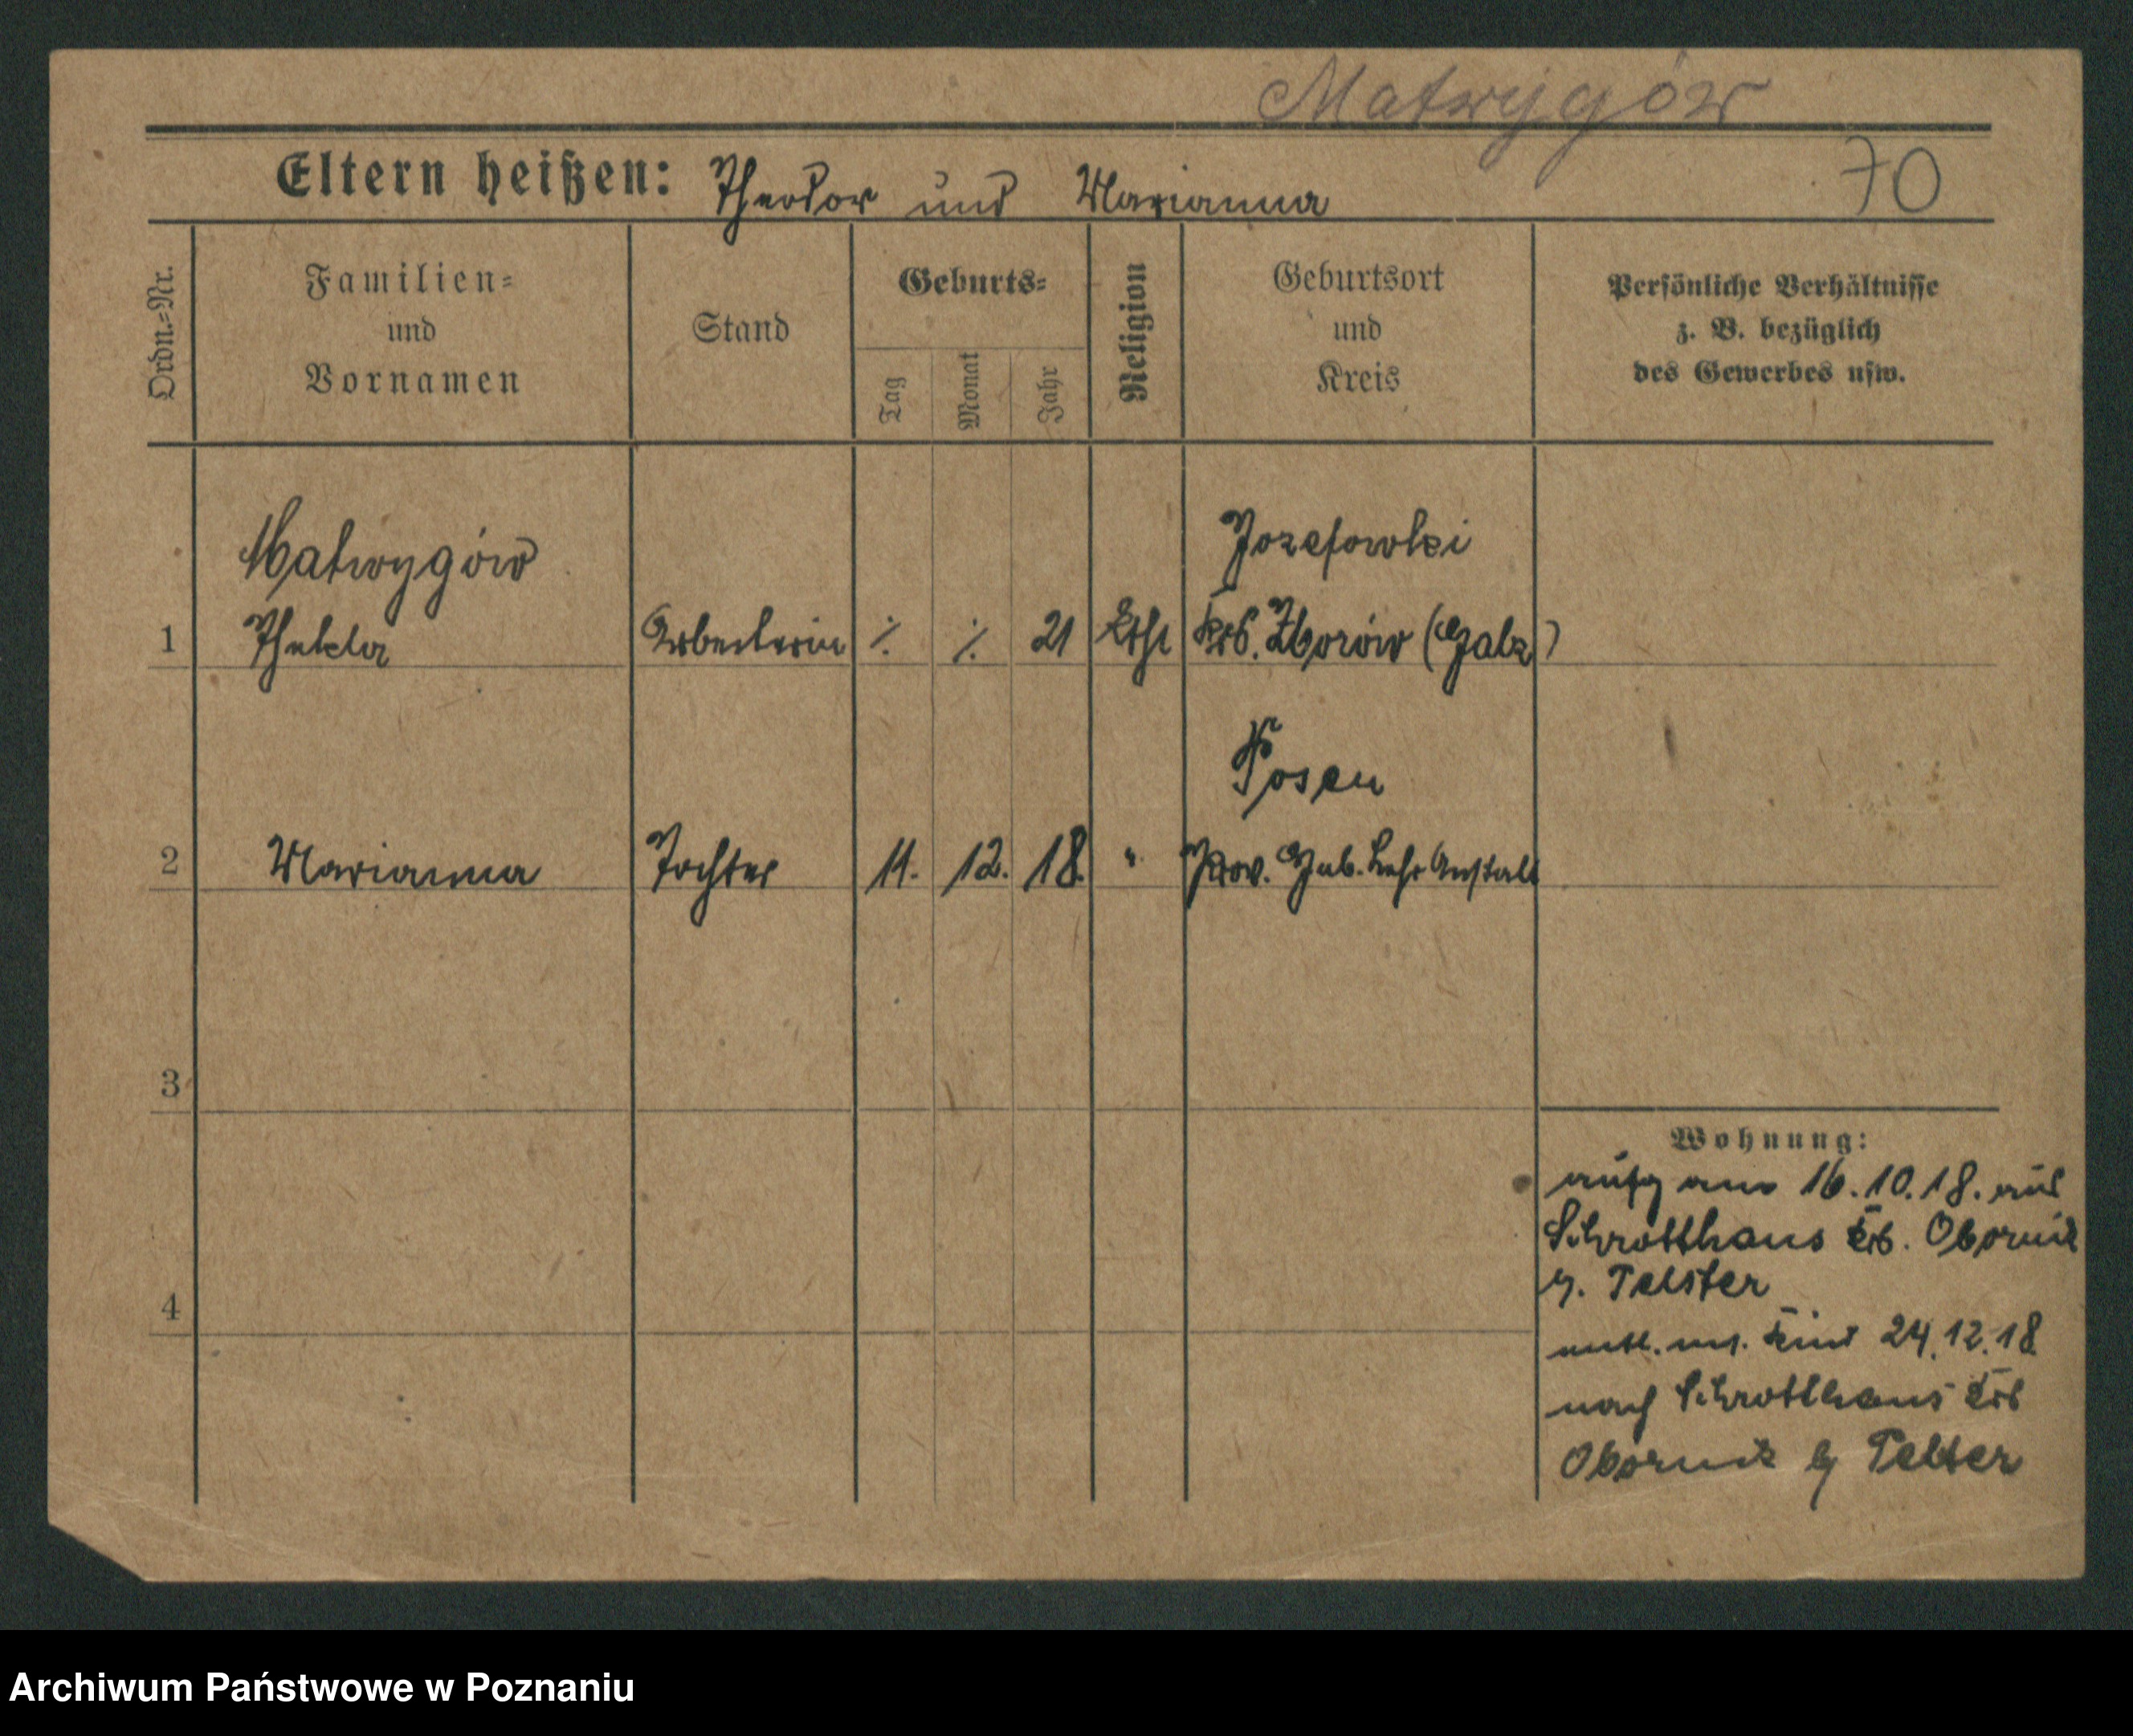 Matwygów
70
Eltern heißen: Theodor und Marianna
Ordn.=Nr.
Familien=
und
Vornamen
Stand
Geburts=
Tag
Monat
Jahr
Religion
Geburtsort
und
Kreis
Persönliche Verhältnisse
z. B. bezüglich
des Gewerbes usw.
Matwygów
Jozefowlzi
1 Thekla Arbeiterin ٪ ٪ 21 Kth Krs. Zborów (Galz)
Posen
2 Marianna Tochter 11. 12. 18. " Prov. Heb. Lehr Anstalt
3
4
Wohnung:
aufg am 16.10.18. aus
Schrotthaus Krs. Obornik
b. Telster
entl. m. Kind 24.12.18
nach Schrotthaus Krs
Obornik b Telster
Archiwum Państwowe w Poznaniu